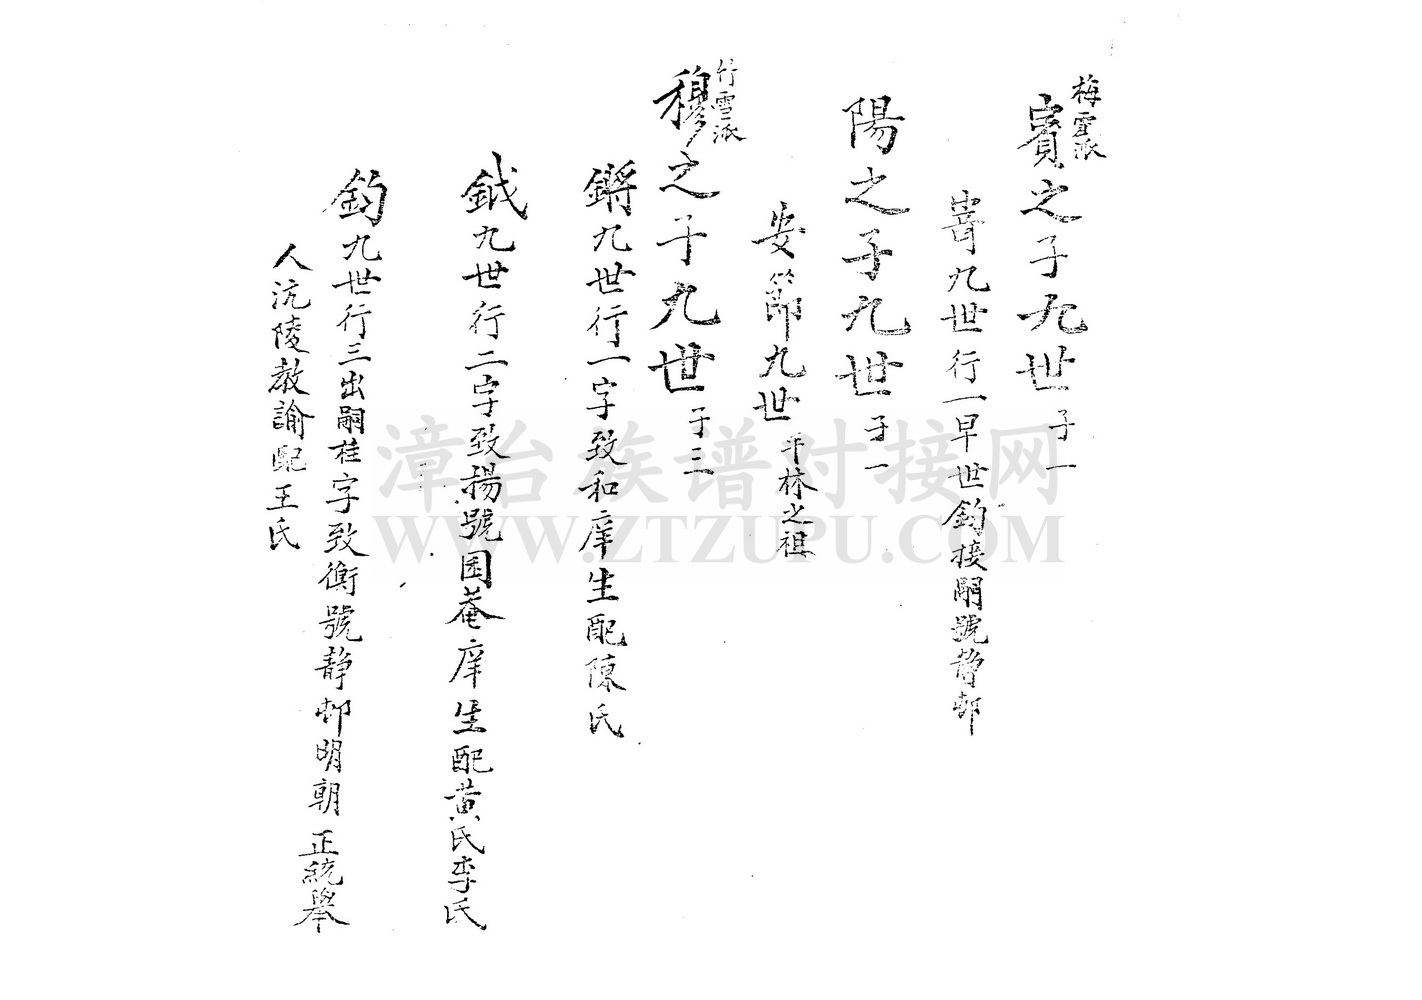 梅雪派
賓之子九世 子一
嵜九世行一早世鈞接嗣號静邨
陽之子九世 子一
安節九世 平林之祖
竹雪派
穆之子九世 子三
鏘九世行一字致和庠生配陳氏
鉞九世行二字致揚號困菴庠生配黄氏李氏
鈞九世行三出嗣桂字致衡號静邨明朝正統舉
人沅陵教諭配王氏
漳台族谱对接网
WWW.ZTZUPU.COM